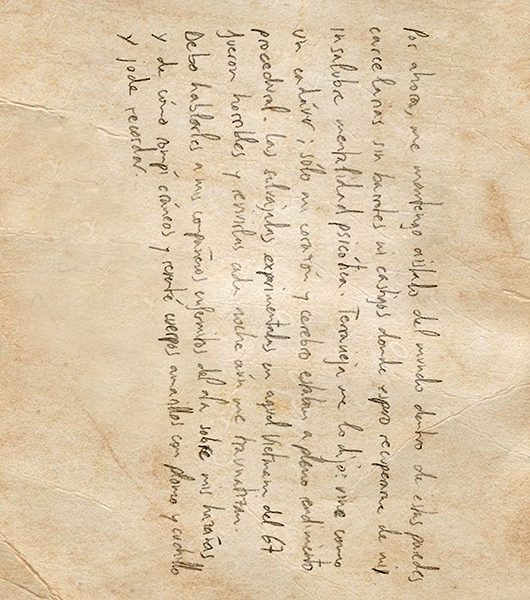 Por ahora, me mantengo aislado del mundo dentro de estas paredes
carcelarias sin barrotes ni castigos donde espero recuperarme de mi
insalubre mentalidad psicótica. Terraneja me lo dijo: vine como
un cadáver; sólo mi corazón y cerebro estaban a pleno rendimiento
procedural. Las salvajadas experimentadas en aquel Vietnam del 67
fueron horribles y revivirlas cada noche aún me traumatizan.
Debo hablarles a mis compañeros enfermitos del ala sobre mis hazañas
y de cómo rompí cráneos y reventé cuerpos amarillos con plomo y cuchillo
y jode recordar.